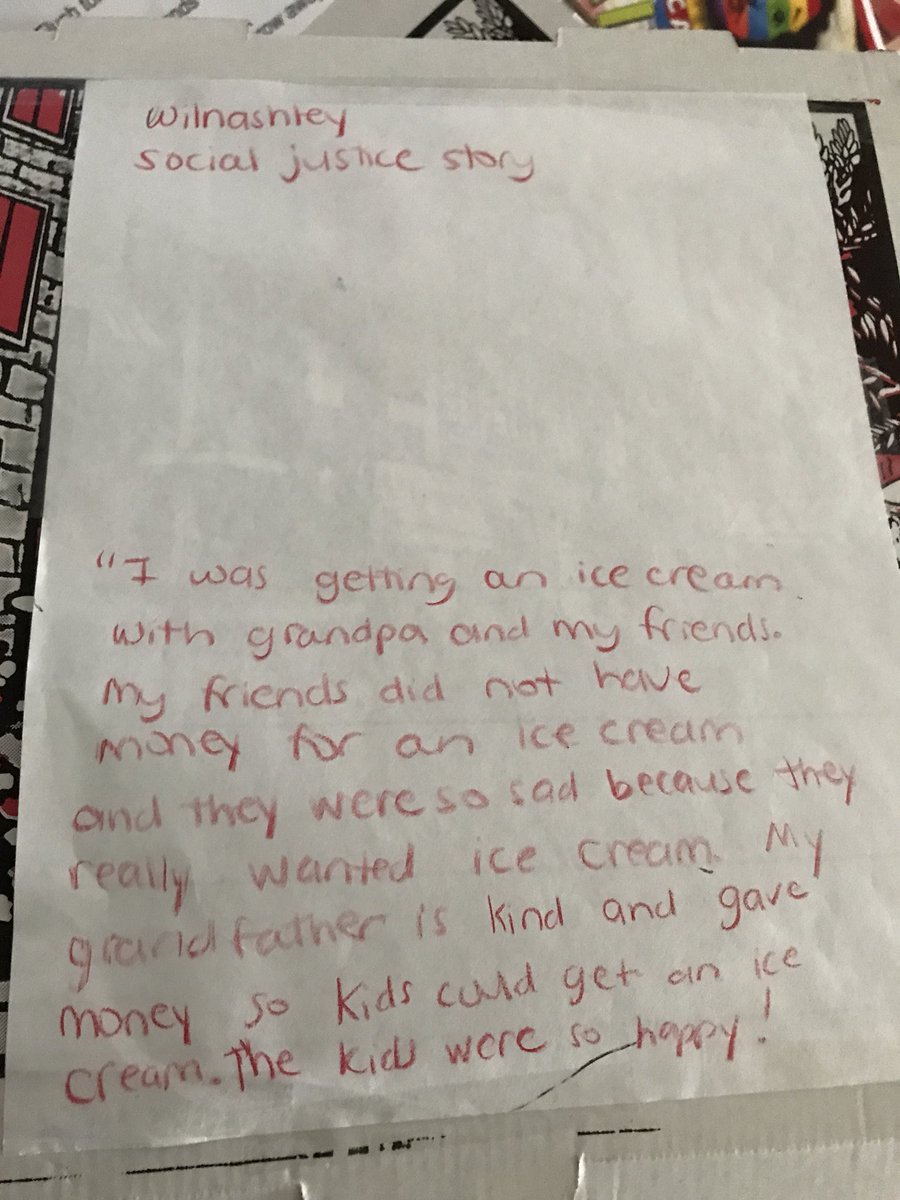 Wilnashley
social justice story
"I was getting an ice cream
with grandpa and my friends.
My friends did not have
money for an ice cream
and they were so sad because they
really wanted ice cream. My
grandfather is kind and gave
money so kids could get an ice
cream. The kids were so happy!